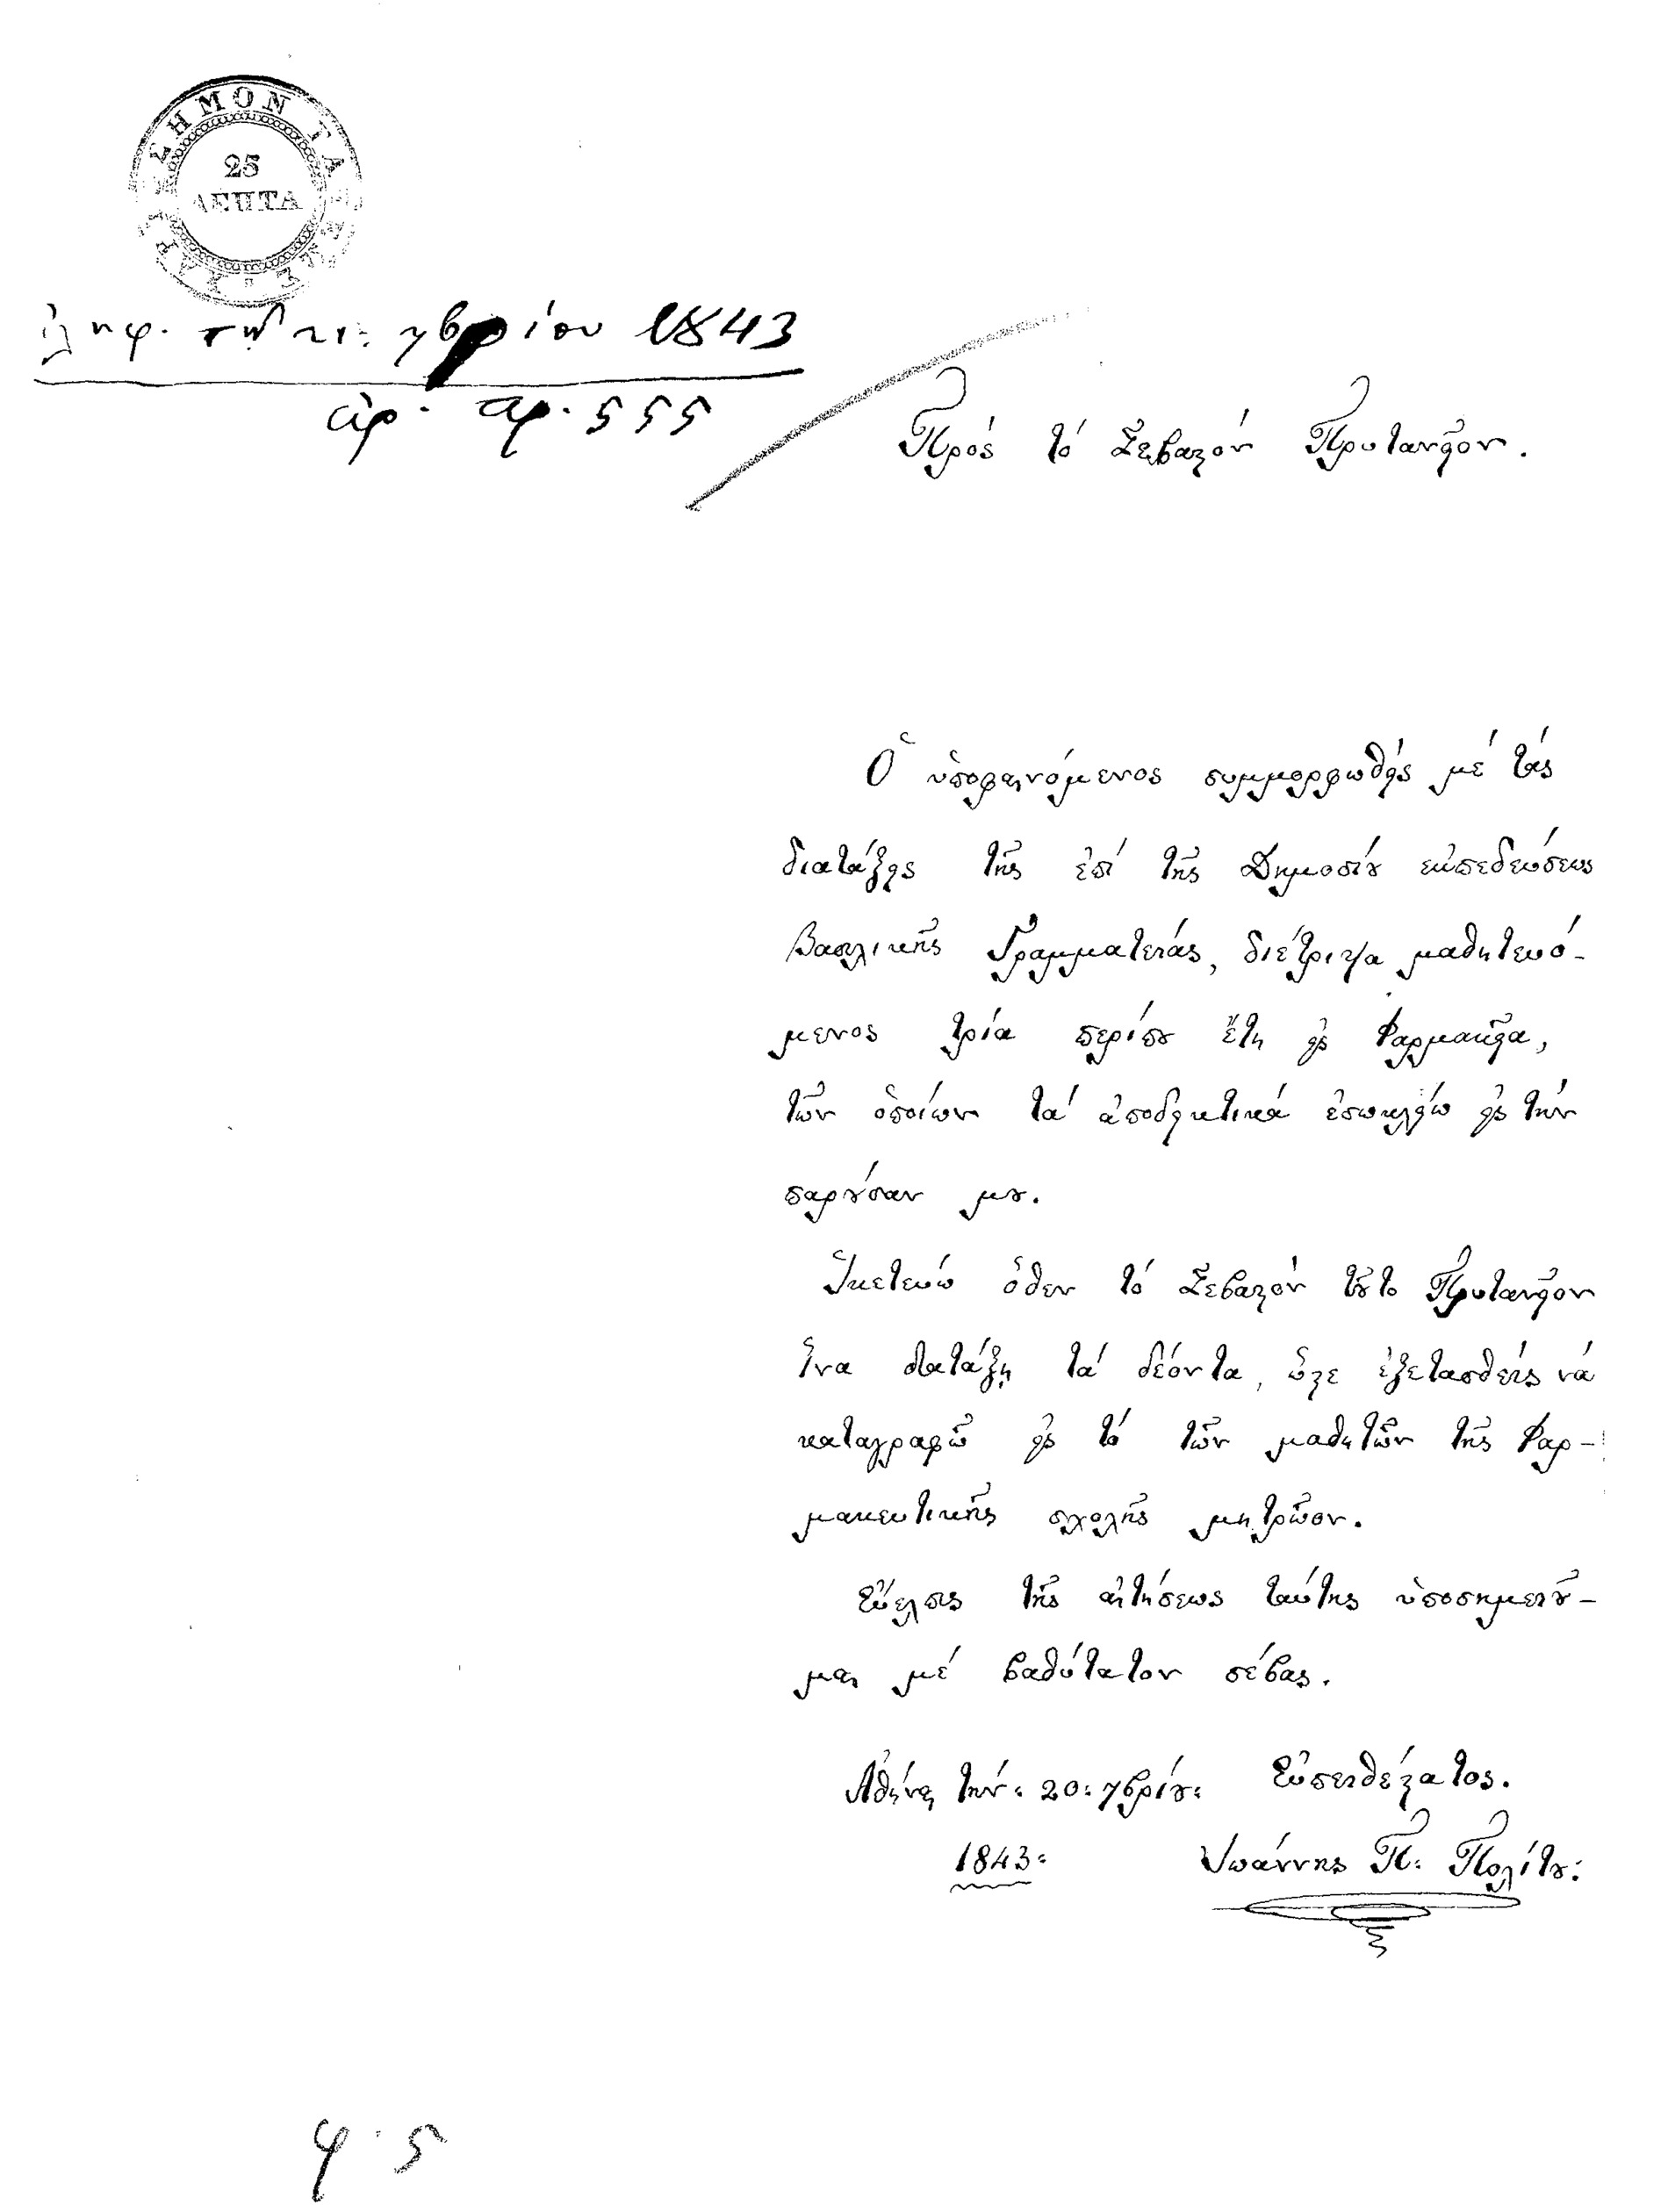 ΧΑΡΤΟΣΗΜΟΝ ΤΑ
25
ΛΕΠΤΑ
ἐλήφ. τῇ 21: 7βρίου 1843
ἀρ. πρ. 555
Πρός τό Σεβαστόν Πρυτανεῖον.
Ὁ ὑποφαινόμενος συμμορφωθείς μέ τάς
διατάξεις τῆς ἐπί τῆς Δημοσίου ἐκπεδεύσεως
Βασιλικῆς Γραμματείας, διέτριψα μαθητευό-
μενος τρία περίπου ἔτη εἰς Φαρμακεῖα,
τῶν ὁποίων τά ἀποδεικτικά ἐσωκλείω εἰς τήν
παρούσαν μου.
Ἱκετεύω ὅθεν τό Σεβαστόν τοῦτο Πρυτανεῖον
ἵνα διατάξῃ τά δέοντα, ὥστε ἐξετασθείς νά
καταγραφῶ εἰς τό τῶν μαθητῶν τῆς Φαρ-
μακευτικῆς σχολῆς μητρῶον.
Εὔελπις τῆς αἰτήσεως ταύτης ὑποσημειοῦ-
μαι μέ βαθύτατον σέβας.
Ἀθήναι τήν: 20: 7βρίου: Εὐπειθέστατος.
1843: Ἰωάννης Π: Πολίτου:
φ. 5